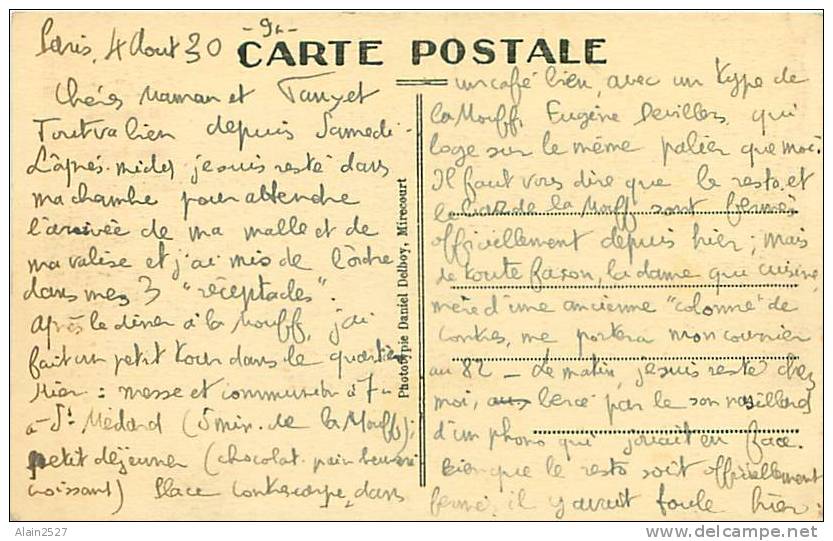 - 9h -
Paris, 4 Aout 30
CARTE POSTALE
Chères Maman et Tanyet
Tout va bien depuis Samedi -
L'après-midi, je suis resté dans
ma chambre pour attendre
l'arrivée de ma malle et de
ma valise et j'ai mis de l'ordre
dans mes 3 "réceptacles".
Après le dîner à la Mouff, j'ai
fait un petit tour dans le quartier
Hier : messe et communion à 7h
à St Médard (5 min. de la Mouff) ;
petit déjeuner (chocolat. pain beurré
croissant) Place Contrescarpe, dans
Phototypie Daniel Delboy, Mirecourt
un café bien, avec un type de
la Mouff, Eugène Devillers, qui
loge sur le même palier que moi.
Il faut vous dire que le resto. et
le de la Mouff sont fermés
officiellement depuis hier ; mais
de toute façon, la dame qui cuisine,
mère d'une ancienne "colonne" de
Contres, me portera mon courrier
au 82 - Le matin, je suis resté chez
moi, bercé par le son nasillard
d'un phono qui jouait en face.
Bien que le resto soit officiellement
fermé, il y avait foule hier.
Alain2527
www.delcampe.net